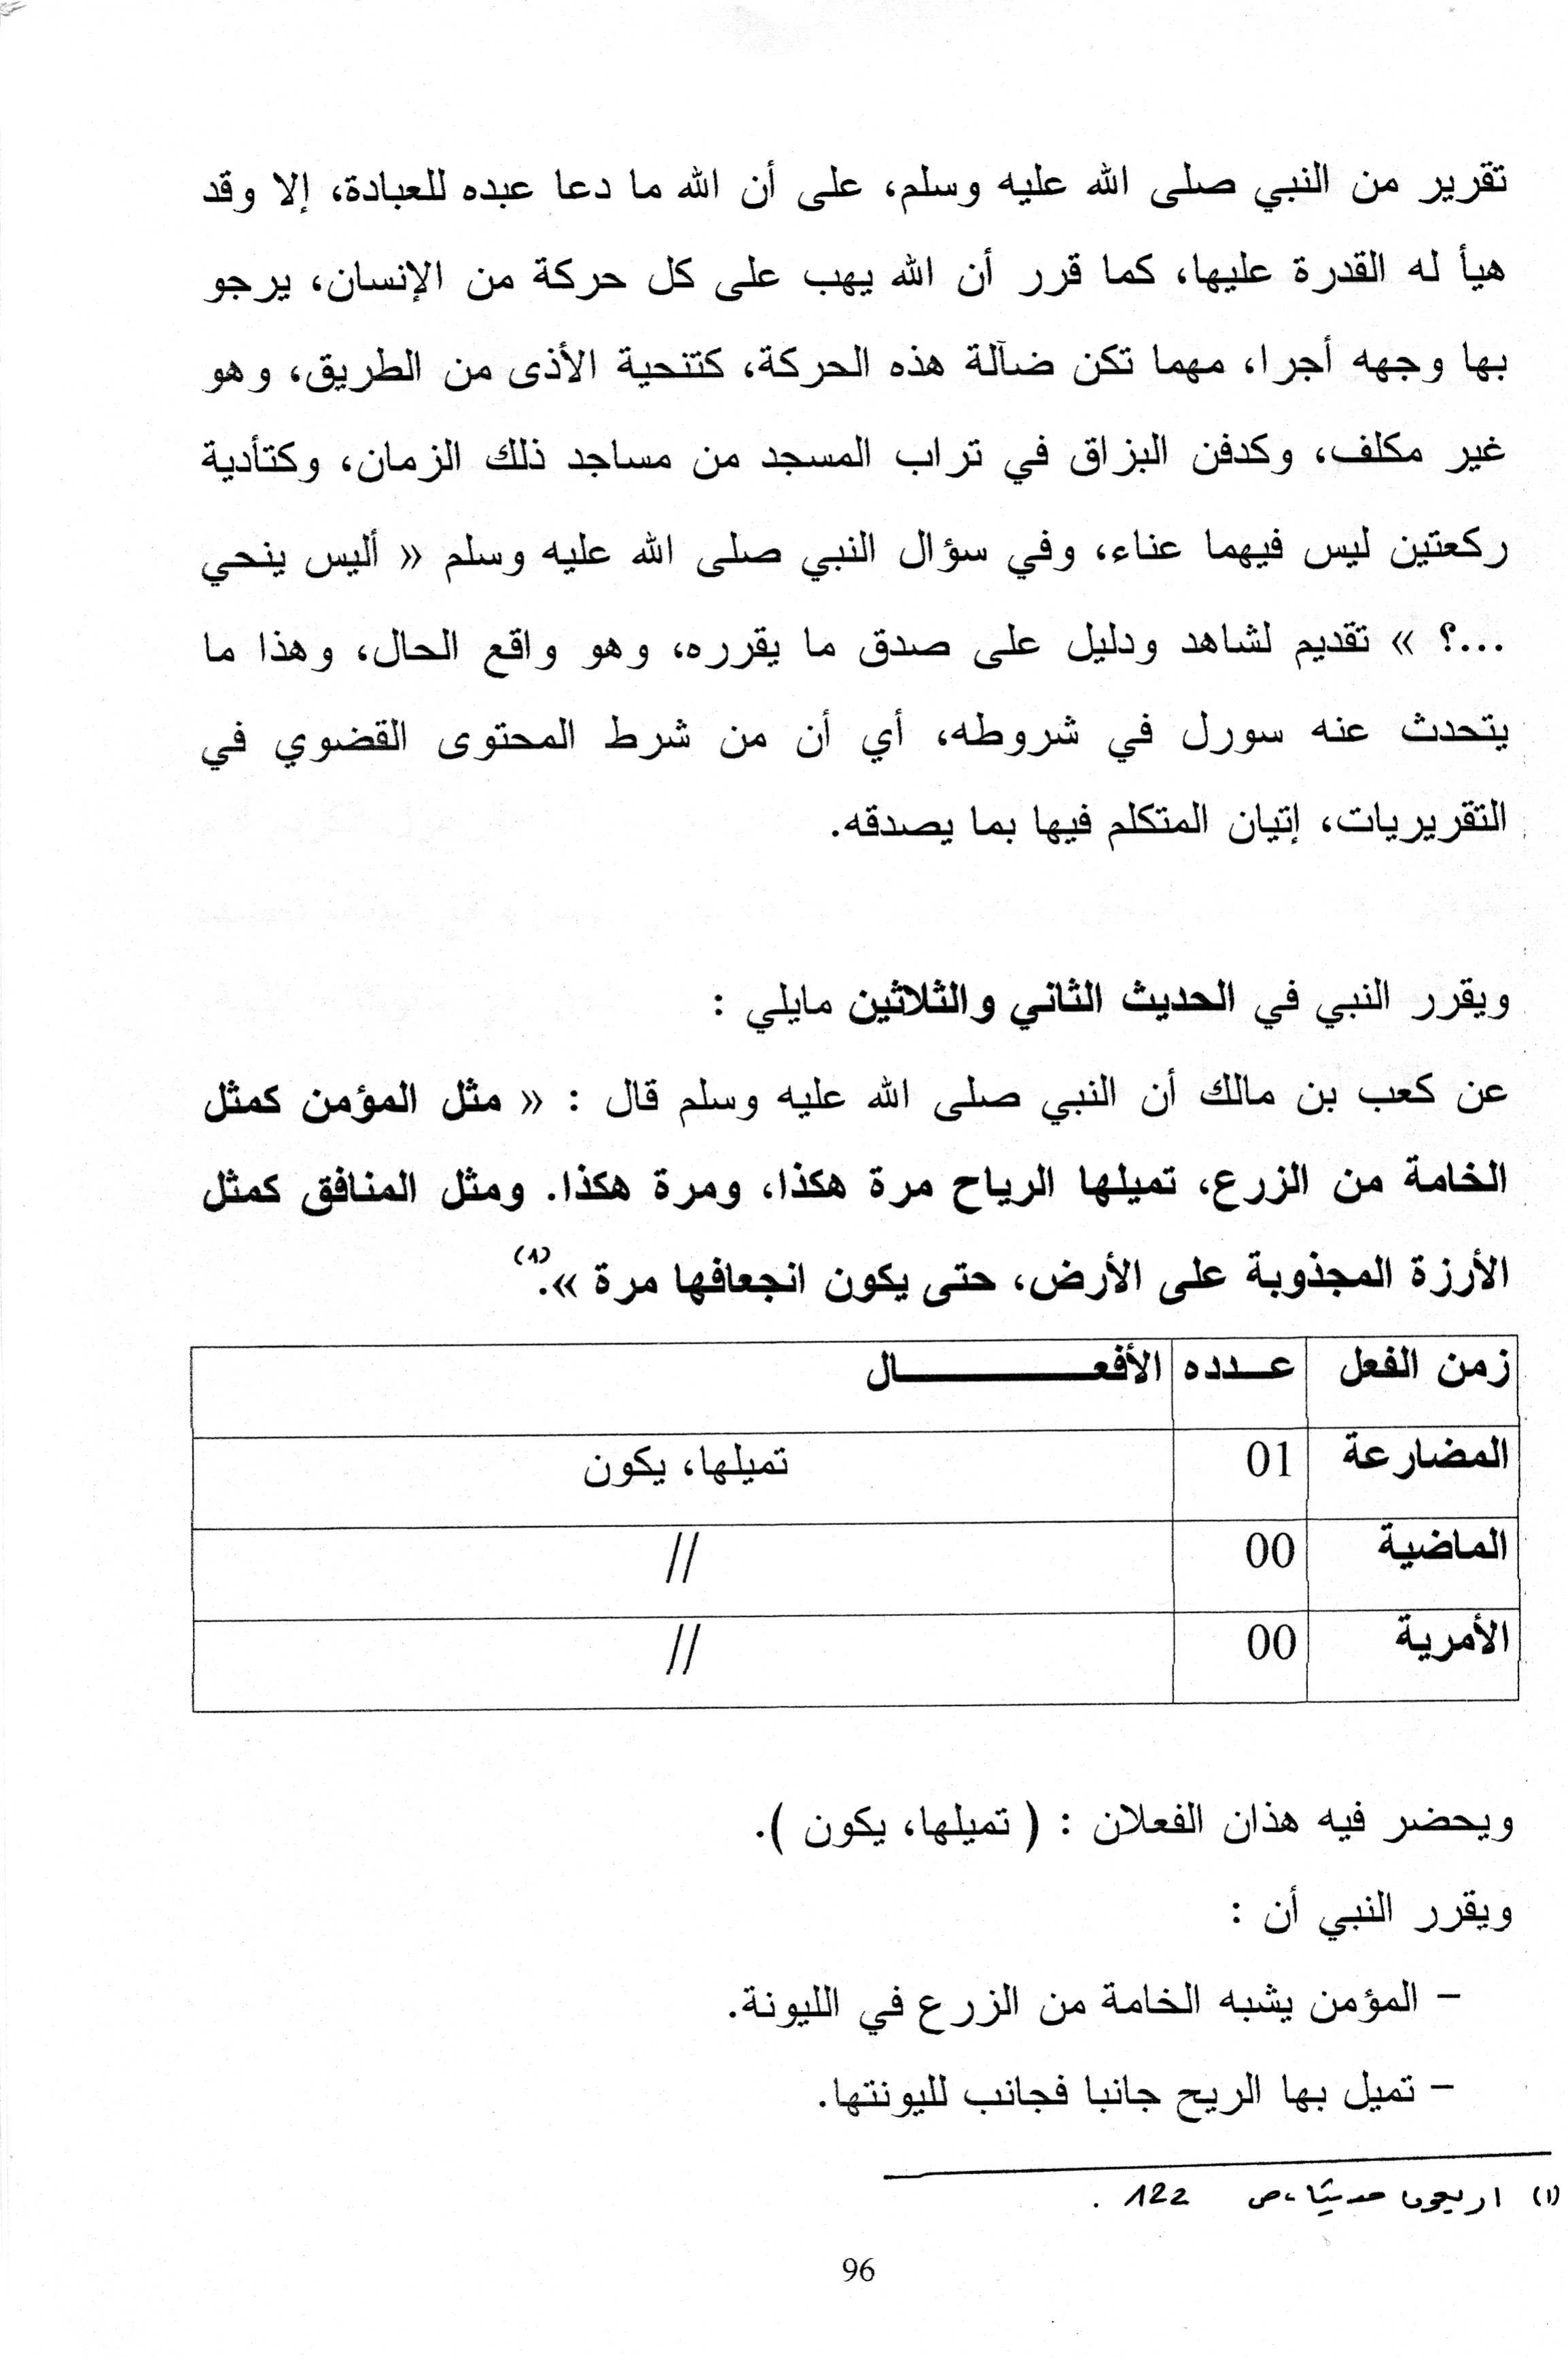 تقرير من النبي صلى الله عليه وسلم، على أن الله ما دعا عبده للعبادة، إلا وقد
هيأ له القدرة عليها، كما قرر أن الله يهب على كل حركة من الإنسان، يرجو
بها وجهه أجرا، مهما تكن ضآلة هذه الحركة، كتنحية الأذى من الطريق، وهو
غير مكلف، وكدفن البزاق في تراب المسجد من مساجد ذلك الزمان، وكتأدية
ركعتين ليس فيهما عناء، وفي سؤال النبي صلى الله عليه وسلم « أليس ينحي
...؟ » تقديم لشاهد ودليل على صدق ما يقرره، وهو واقع الحال، وهذا ما
يتحدث عنه سورل في شروطه، أي أن من شرط المحتوى القضوي في
التقريريات، إتيان المتكلم فيها بما يصدقه.
ويقرر النبي في الحديث الثاني والثلاثين مايلي :
عن كعب بن مالك أن النبي صلى الله عليه وسلم قال : « مثل المؤمن كمثل
الخامة من الزرع، تميلها الرياح مرة هكذا، ومرة هكذا. ومثل المنافق كمثل
الأرزة المجذوبة على الأرض، حتى يكون انجعافها مرة ».(1)
زمن الفعل عـــدده الأفعـــــــــــــال
المضارعة 01 تميلها، يكون
الماضية 00 //
الأمرية 00 //
ويحضر فيه هذان الفعلان : ( تميلها، يكون ).
ويقرر النبي أن :
– المؤمن يشبه الخامة من الزرع في الليونة.
– تميل بها الريح جانبا فجانب لليونتها.
(1) اربعون حديثا، ص 122 .
96